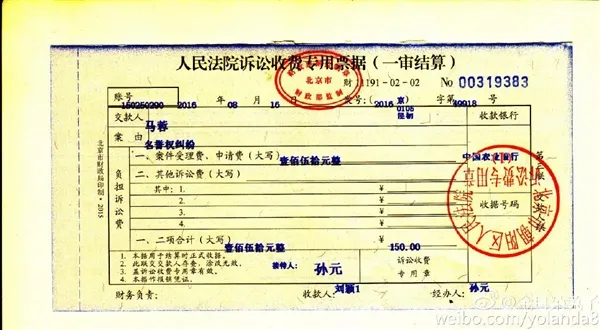 人民法院诉讼收费专用票据(一审结算)
财 J191-02-02 No 00319383
北京市
财政部监制
账号 150250290 2016 年 08 月 16 日 票号:(2016 京0105民初 字第 49918 号
交款人 马蓉 收款银行
案由 名誉权纠纷
一、案件受理费、申请费(大写) 壹佰伍拾元整 中国农业银行
负担诉讼费
二、其他诉讼费(大写)
其中:1.
2.
3.
4.
收据号码
一、二项合计(大写) 壹佰伍拾元整 150.00
1.本据用于结算时正式收据。
2.此联交交款人存查,涂改无效。
3.盖诉讼收费专用章有效。
4.本据作报销凭证。
接待人: 孙元
诉讼收费
专用章
财务负责: 收款人: 刘颖1 经办人: 孙元
北京市财政局印制·2015
北京市朝阳区人民法院
诉讼费专用章
weibo.com/yolanda8